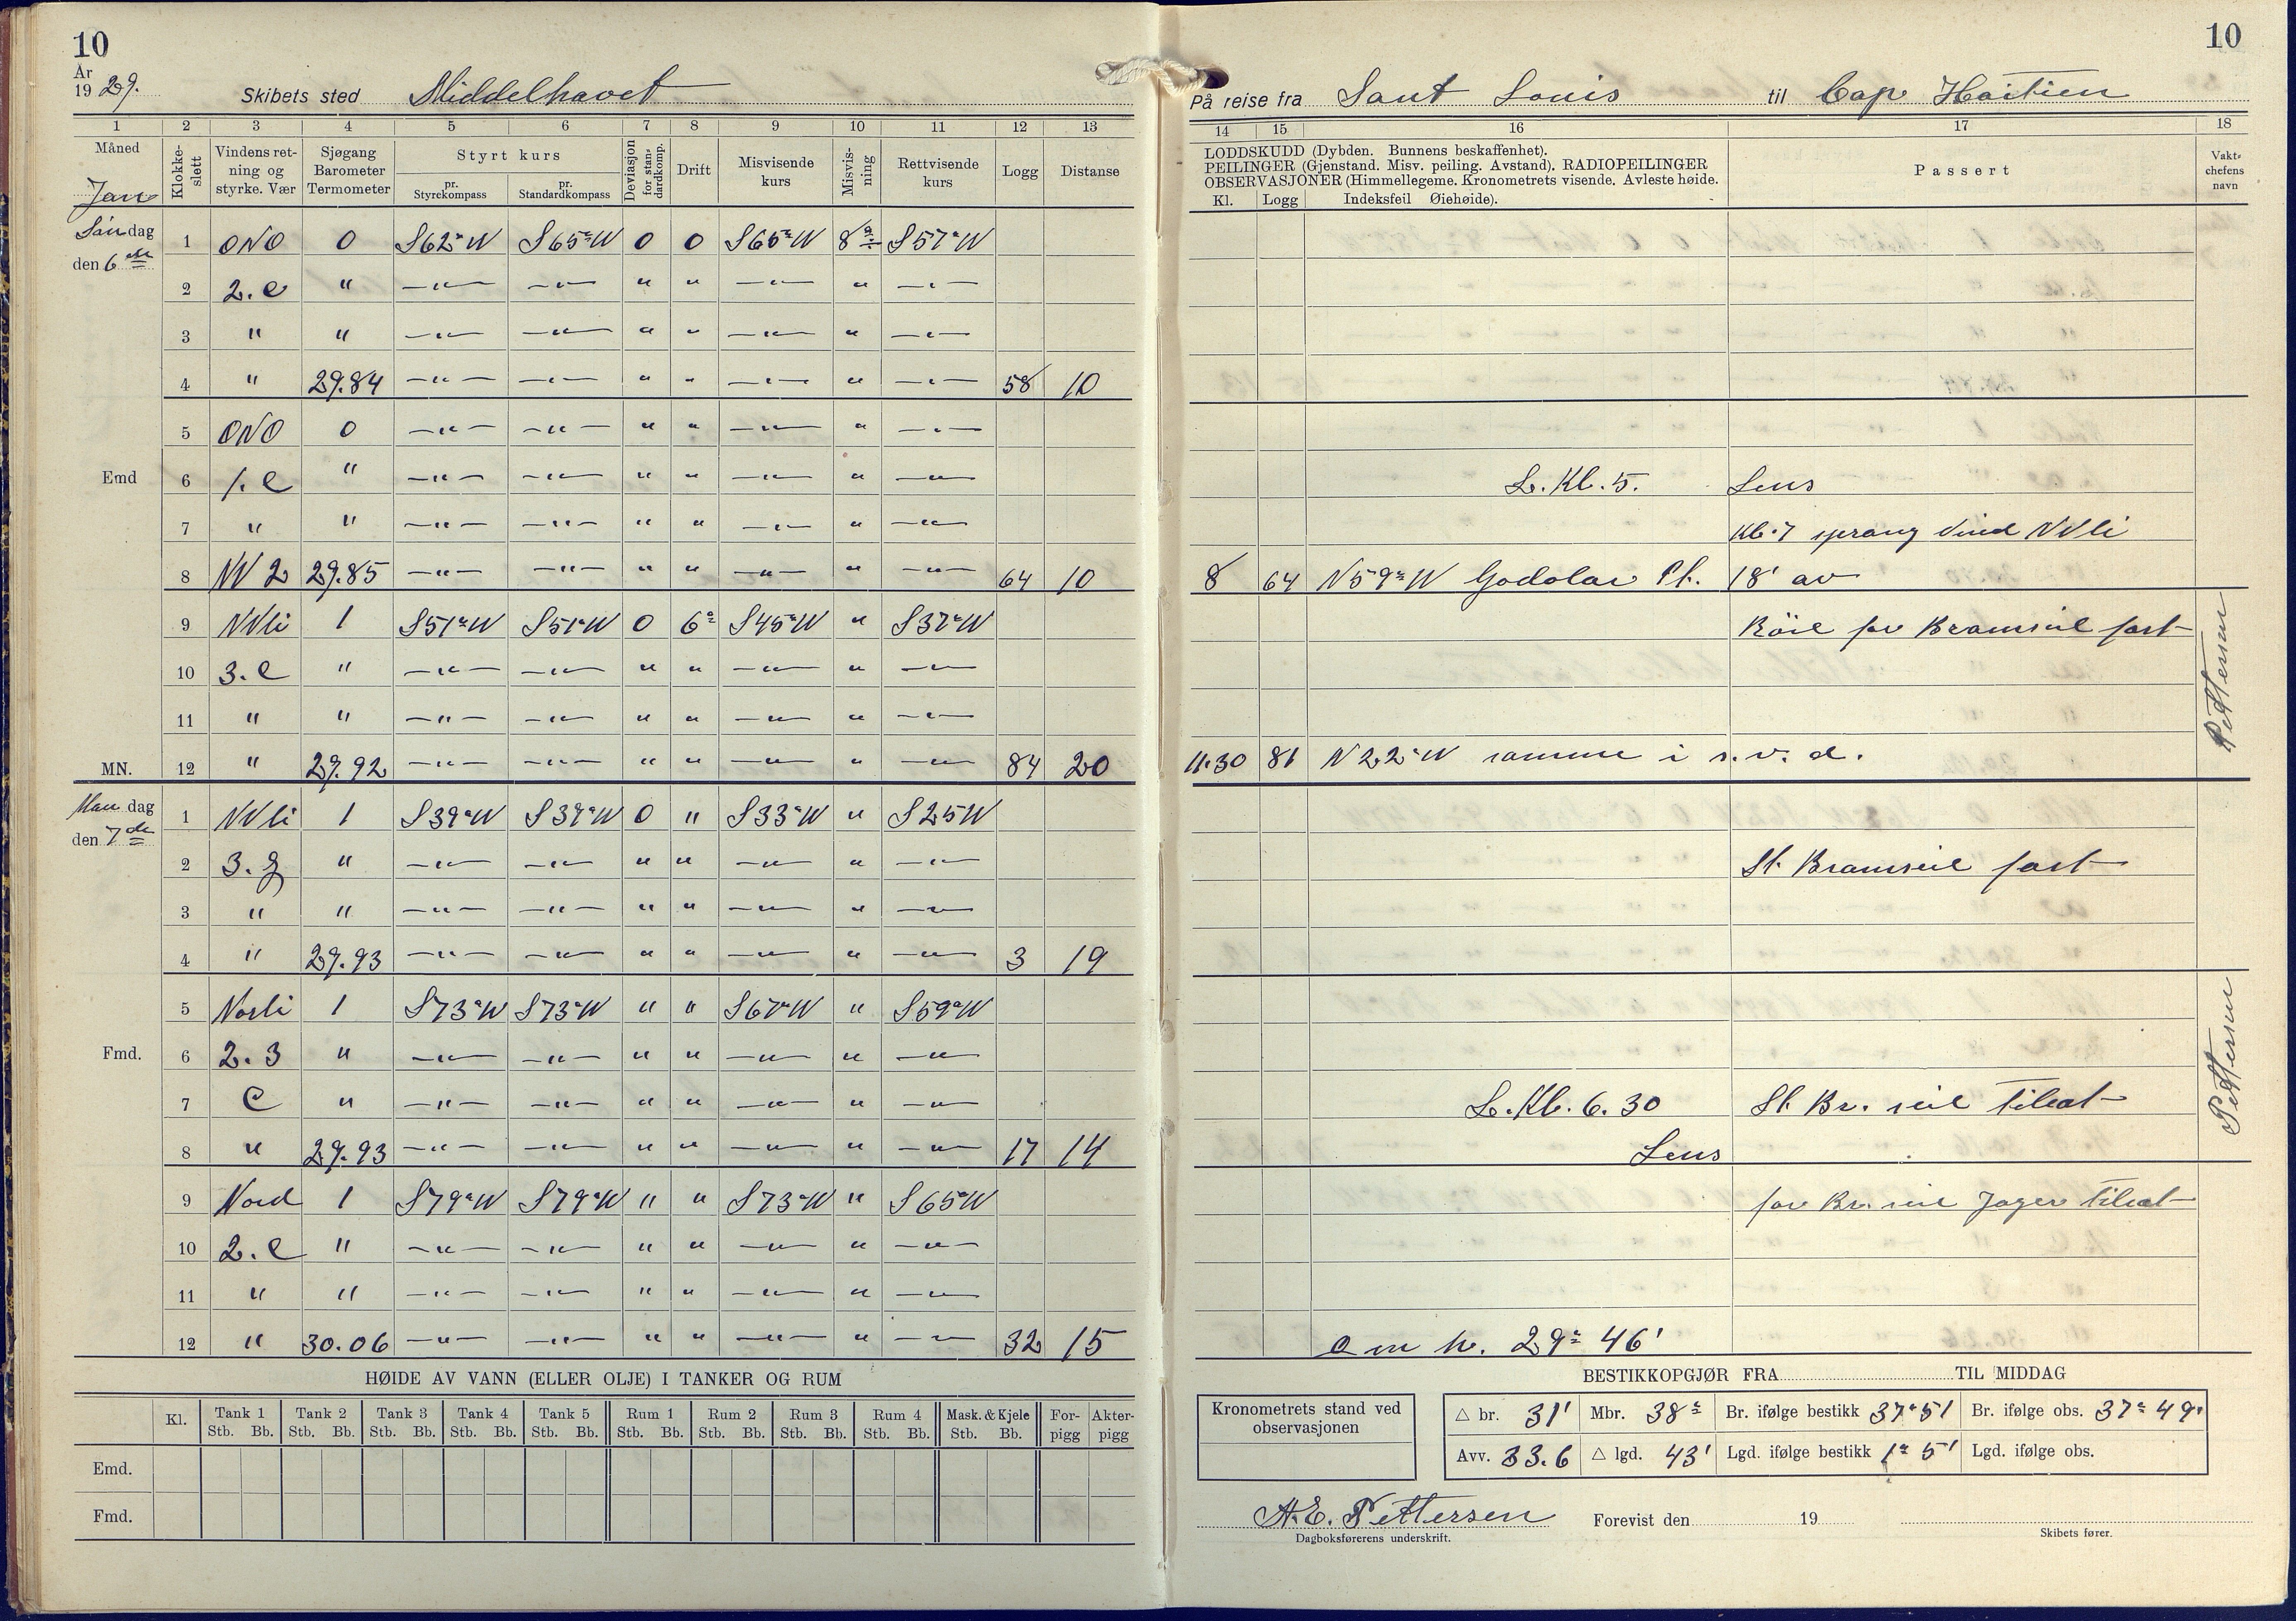 10
År
19 29.
Skibets sted Middelhavet
1 2 3 4 5 6 7 8 9 10 11 12 13
Måned
Klokke-slett
Vindens ret-ning og styrke. Vær
Sjøgang Barometer Termometer
Styrt kurs
pr. Styrekompass
pr. Standardkompass
Deviasjon for stan-dardkomp.
Drift
Misvisende kurs
Misvis-ning
Rettvisende kurs
Logg
Distanse
Jan
Søndag
den 6
1 ONO 0 S62°W S65°W 0 0 S65°W 8° S57°W
2 2.c " —"— —"— " " —"— " —"—
3 " " —"— —"— " " —"— " —"—
4 " 29.84 —"— —"— " " —"— " —"— 58 10
5 ONO 0 —"— —"— " " —"— " —"—
Emd 6 1.c " —"— —"— " " —"— " —"—
7 " " —"— —"— " " —"— " —"—
8 NV 2 29.85 —"— —"— " " —"— " —"— 64 10
9 NVli 1 S51°W S51°W 0 6° S45°W " S37°W
10 3.c " —"— —"— " " —"— " —"—
11 " " —"— —"— " " —"— " —"—
MN. 12 " 29.92 —"— —"— " " —"— " —"— 84 20
Mandag
den 7de
1 NVli 1 S39°W S39°W 0 " S33°W " S25W
2 3.g " —"— —"— " " —"— " —"—
3 " " —"— —"— " " —"— " —"—
4 " 29.93 —"— —"— " " —"— " —"— 3 19
5 Norli 1 S73°W S73°W " " S67°W " S59°W
Fmd. 6 2.3 " —"— —"— " " —"— " —"—
7 C " —"— —"— " " —"— " —"—
8 " 29.93 —"— —"— " " —"— " —"— 17 14
9 Nord 1 S79°W S79°W " " S73°W " S65°W
10 2.c " —"— —"— " " —"— " —"—
11 " " —"— —"— " " —"— " —"—
12 " 30.06 —"— —"— " " —"— " —"— 32 15
HØIDE AV VANN (ELLER OLJE) I TANKER OG RUM
Kl. Tank 1 Tank 2 Tank 3 Tank 4 Tank 5 Rum 1 Rum 2 Rum 3 Rum 4 Mask. & Kjele For-pigg Akter-pigg
Stb. Bb. Stb. Bb. Stb. Bb. Stb. Bb. Stb. Bb. Stb. Bb. Stb. Bb. Stb. Bb. Stb. Bb. Stb. Bb.
Emd.
Fmd.
10
På reise fra Sant Louis til Cap Haitien
14 15 16 17 18
LODDSKUDD (Dybden. Bunnens beskaffenhet).
PEILINGER (Gjenstand. Misv. peiling. Avstand). RADIOPEILINGER
OBSERVASJONER (Himmellegeme. Kronometrets visende. Avleste høide.
Kl. Logg Indeksfeil Øiehøide).
Passert
Vakt-chefens navn
L. Kl. 5. Lens
Kl. 7 sprang Vind NVli
8 64 N59°W Godolar Pt. 18' av
Röil for Bramseil fast
11.30 81 N22°W samme i s.v.d.
Pettersen
St. Bramseil fast
L. Kl. 6.30 St. Br. seil tilsat
Lens
for Br. seil Jager tilsat
Pettersen
o m h. 29° 46'
BESTIKKOPGJØR FRA TIL MIDDAG
Kronometrets stand ved observasjonen
△ br. 31' Mbr. 38° Br. ifølge bestikk 37°51 Br. ifølge obs. 37° 49'
Avv. 33.6 △ lgd. 43' Lgd. ifølge bestikk 1° 5' Lgd. ifølge obs.
A.E. Pettersen Forevist den 19
Dagboksførerens underskrift. Skibets fører.